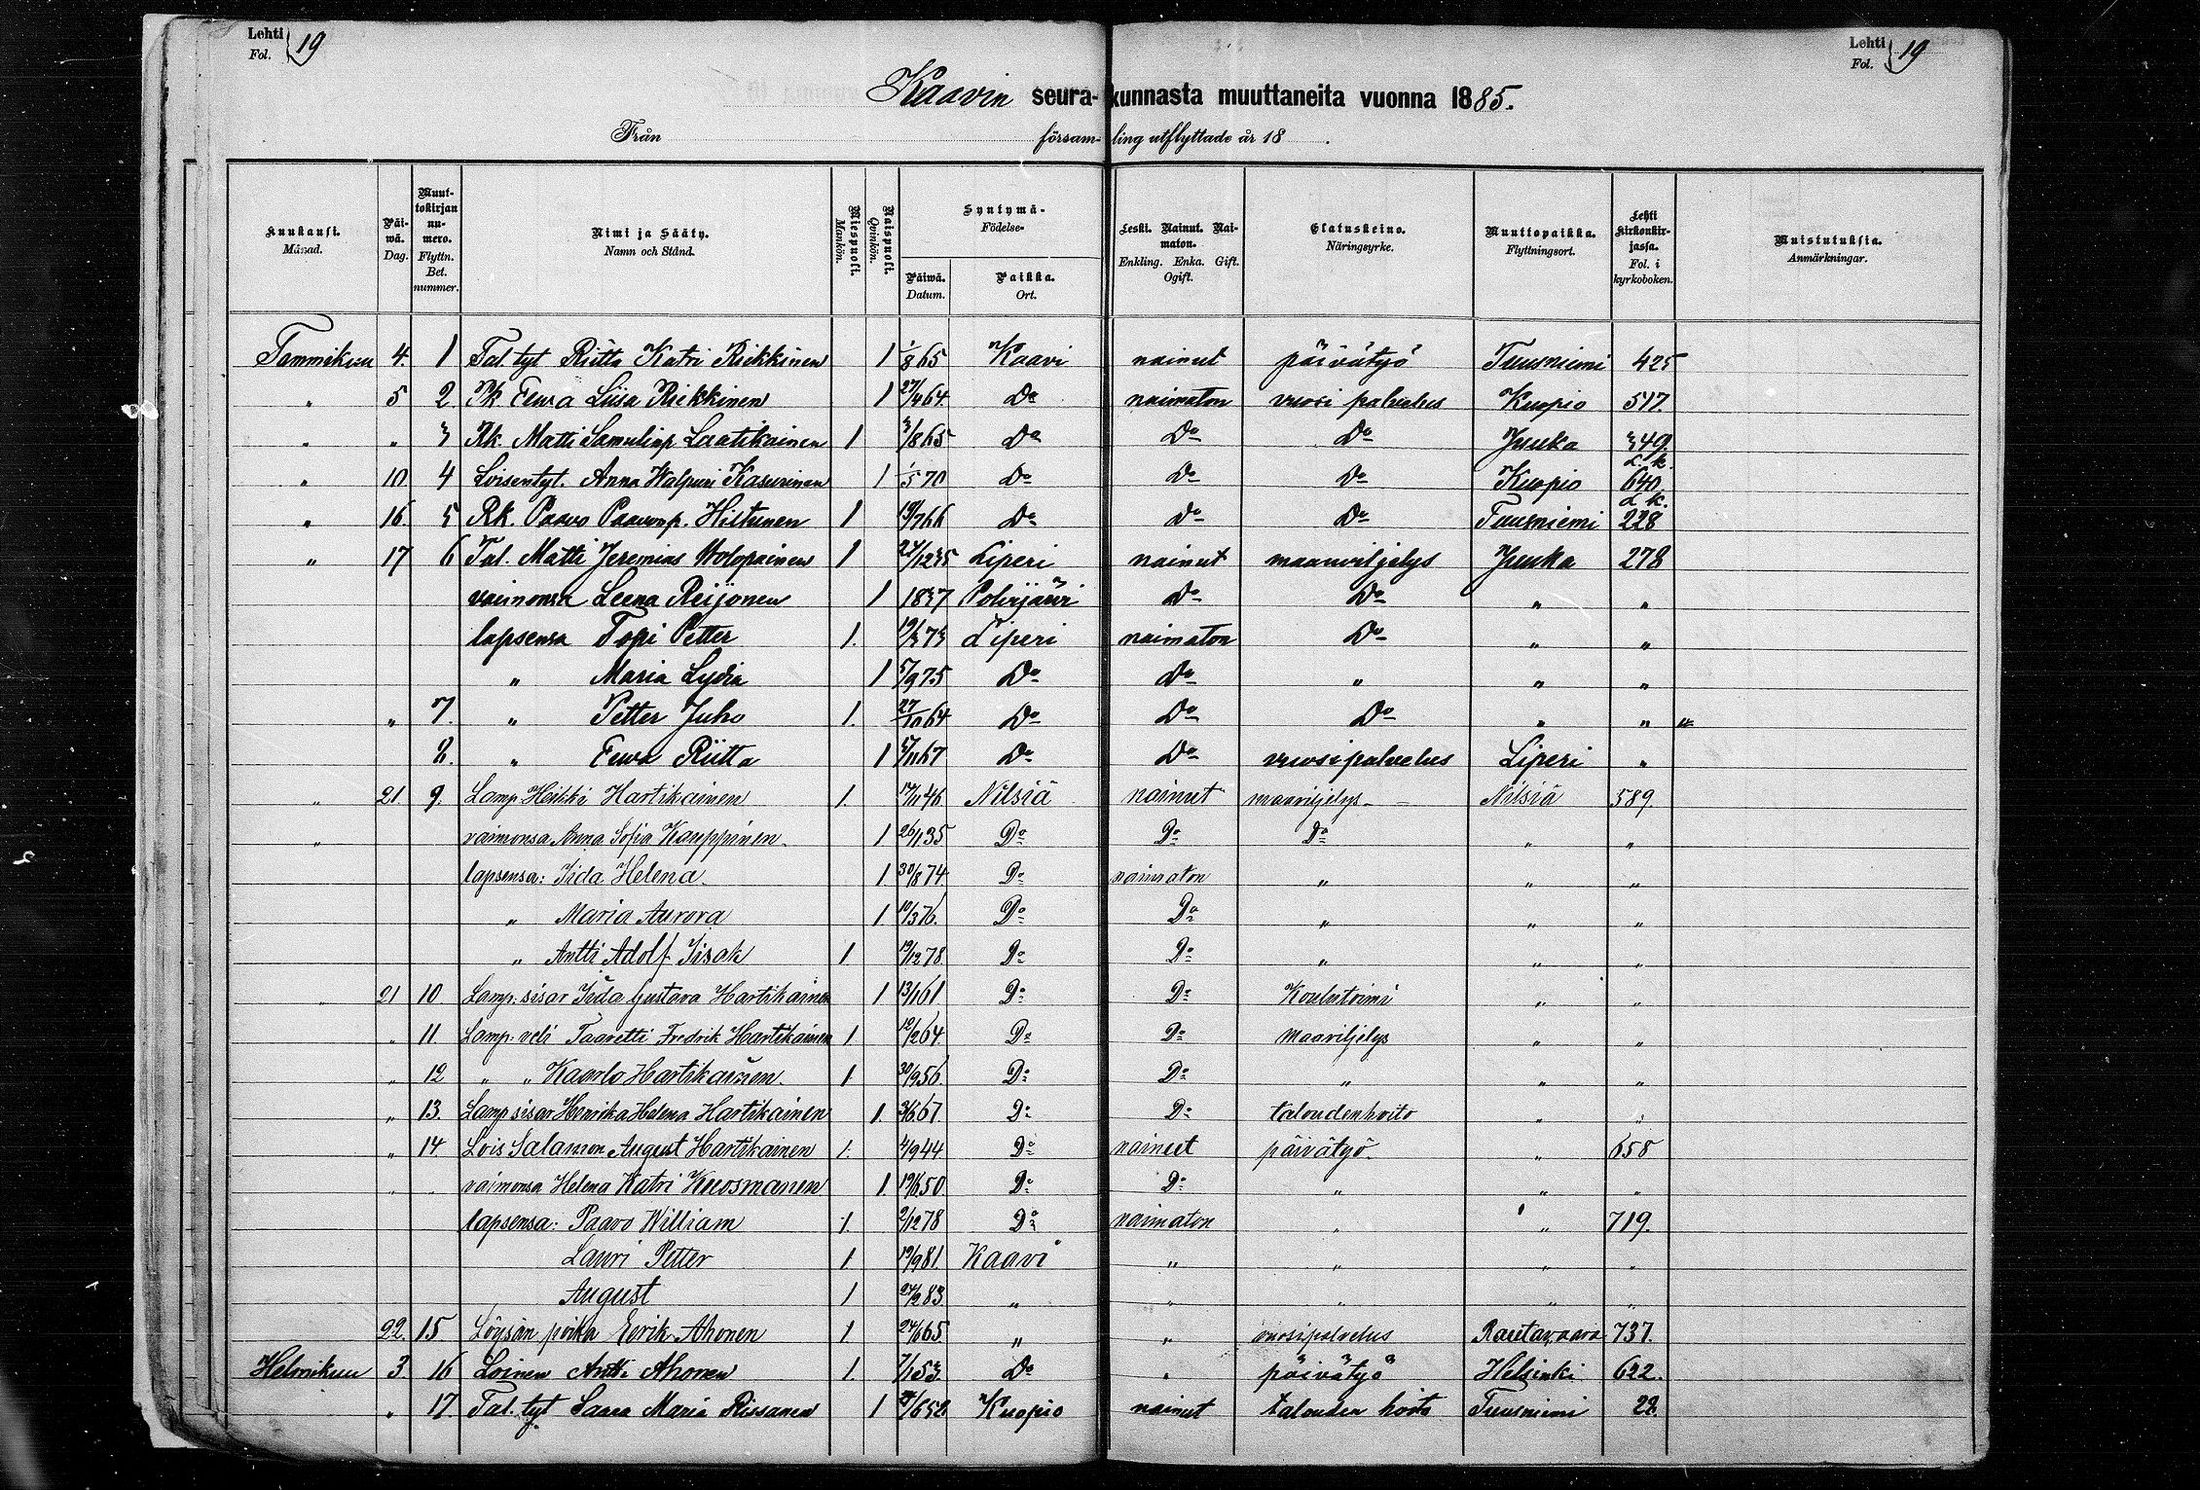 Lehti 19 Lehti 19
Fol. Fol.
Kaavin seurakunnasta muuttaneita vuonna 1885.
Från församling utflyttade år 18 .
Kuukausi. Månad. Päiwä. Dag. Muuttokirjan numero. Flyttn. Bet. nummer. Nimi ja Sääty. Namn och Stånd. Miespuoli. Mankön. Naispuoli. Qvinkön. Syntymä- Födelse- Päiwä. Datum. Paikka. Ort. Leski. Nainut. Naimaton. Enkling. Enka. Gift. Ogift. Elatuskeino. Näringsyrke. Muuttopaikka. Flyttningsort. Lehti kirkonkirjassa. Fol. i kyrkoboken. Muistutuksia. Anmärkningar.
Tammikuu 4. 1 Tal. tyt Riitta Katri Riekkinen 1 1/8 65 Kaavi nainut päivätyö Tuusniemi 425
„ 5 2. Pk Eewa Liisa Riekkinen 1 27/4 64. Do naimaton vuosi palvelus Kuopio 517.
„ „ 3 Rk. Matti Samulinp. Laatikainen 1 3/8 65 Do Do Do Juuka 349. L. k.
„ 10. 4 Loisentyt. Anna Walpuri Kasurinen 1 1/5 70 Do Do Do Kuopio 640. L. k.
„ 16. 5 Rk. Paavo Paavonp. Hiltunen 1 19/7 66 Do Do Do Tuusniemi 228
„ 17 6 Tal. Matti Jeremias Wolopainen 1 24/12 35 Liperi nainut maanviljelys Juuka 278
vaimonsa Leena Reijonen 1 1837 Polvijärvi Do Do „ „
lapsensa Topi Petter 1. 19/3 73 Liperi naimaton Do „ „
„ Maria Lydia 1 5/9 75 Do Do „ „ „
„ 7. „ Petter Juho 1. 27/10 64 Do Do Do „ „ „
8. „ Eewa Riitta 1 /11 67 Do Do vuosipalvelus Liperi „
„ 21. 9. Lamp. Heikki Hartikainen 1. 17/11 46 Nilsiä nainut maaviljelys Nilsiä 589.
„ vaimonsa Anna Sofia Kauppinen. 1 26/1 35 Do Do Do „ „
lapsensa: Iida Helena. 1. 30/8 74. Do naimaton „ „ „
„ Maria Aurora 1. 10/3 76. Do Do „ „ „
„ Antti Adolf Iisak 1 19/12 78. Do Do „ „ „
„ 21 10 Lamp: sisar Iida Gustava Hartikainen 1 13/1 61 Do Do Koulutoimi „ „
„ 11. Lamp: veli Taavetti Fredrik Hartikainen 1 12/2 64. Do Do maaviljelys „ „
„ 12 „ „ Kaarlo Hartikainen. 1 30/9 56. Do Do „ „ „
„ 13. Lamp sisar Henrika Helena Hartikainen 1. 3/6 67. Do Do taloudenhoito „ „
„ 14 Lois Salamon August Hartikainen 1. 4/9 44 Do nainut päivätyö. „ 658
„ „ vaimonsa Helena Katri Kuosmanen 1. 19/6 50. Do Do „ „ „
lapsensa: Paavo William 1 2/12 78 Do naimaton „ „ 719.
Lauri Petter 1 19/9 81. Kaavi „ „ „ „
August 1 24/2 83. „ „ „ „ „
22. 15 Löysän poika Eerik Ahonen 1 24/6 65. „ „ vuosipalvelus Rautavaara 737.
Helmikuu 3. 16 Loinen Antti Ahonen 1. 7/1 53. Do „ päivätyö Helsinki 622.
„ 17. Tal. tyt Saara Maria Rissanen 1 /6 52 Kuopio nainut talouden hoito Tuusniemi 22.